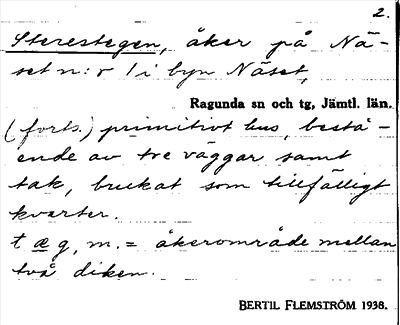 2.
Sterestegen, åker på Nä-
set n:r 1 i byn Näset,
Ragunda sn och tg, Jämtl. län.
(forts.) primitivt hus, bestå-
ende av tre väggar samt
tak, brukat som tillfälligt
kvarter.
tæg, m. = åkerområde mellan
två diken.
BERTIL FLEMSTRÖM 1938.